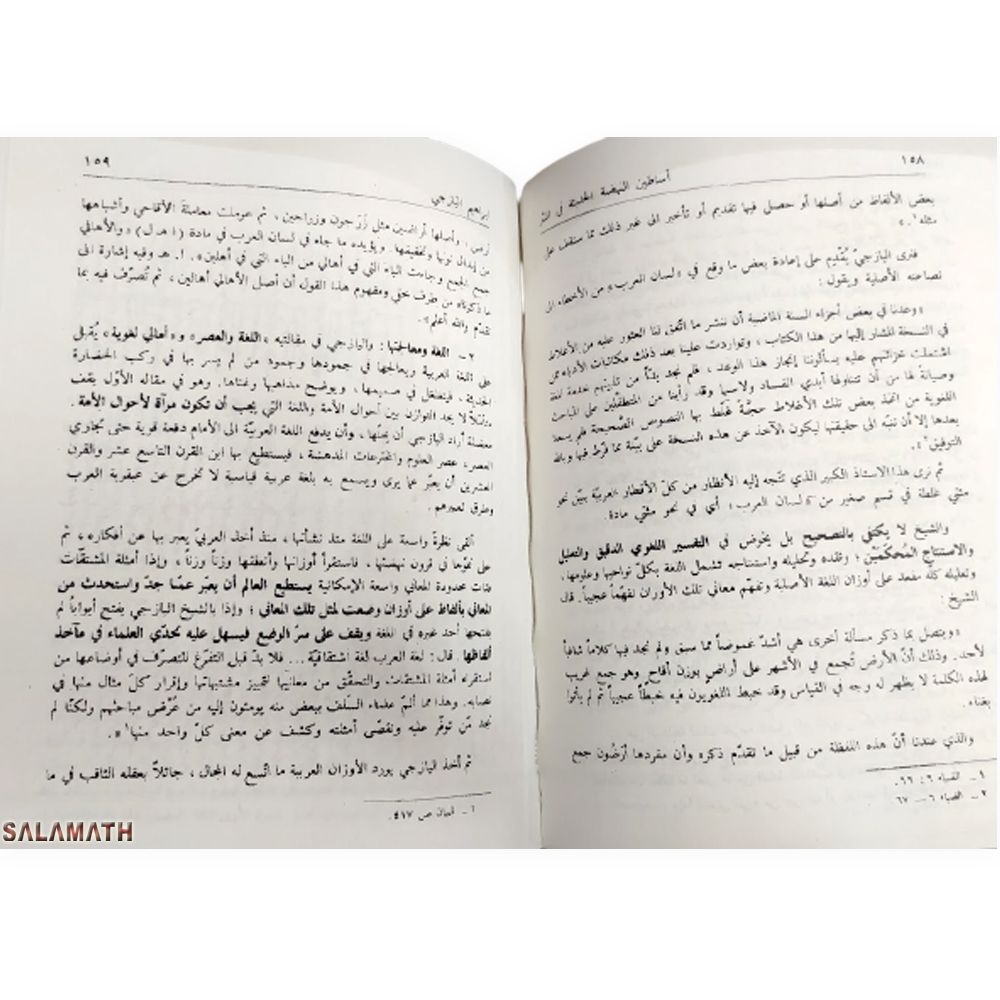 ١٥٨
أساطين النهضة الحديثة في
بعض الألفاظ من أصلها أو حصل فيها تقديم أو تأخير الى غير ذلك مما ستقف على
مثله١.»
فترى اليازجيّ يُقدِم على إعادة بعض ما وقع في «لسان العرب» من الأخطاء الى
نصاحته الأصلية ويقول :
«وعدنا في بعض أجزاء السنة الماضية أن ننشر ما اتّفق لنا العثور عليه من الأغلاط
في النسخة المشار إليها من هذا الكتاب ، وتواردت علينا بعد ذلك مكاتبات الأدباء ممن
اشتملت خزائنهم عليه يسألوننا إنجاز هذا الوعد ، فلم نجد بدّاً من تلبيتهم خدمة للغة
وصيانةً لها من أن تتناولها أيدي الفساد ولاسيما وقد رأينا من المتطفّلين على المباحث
اللغوية من اتخذ بعض تلك الأغلاط حجّةً غلّط بها النصوص الصّحيحة فلم يسعنا
بعدها إلا أن ننبّه الى حقيقتها ليكون الآخذ عن هذه النسخة على بيّنة مما فرّط فيها وبالله
التوفيق٢».
ثم نرى هذا الاستاذ الكبير الذي تتّجه إليه الأنظار من كلّ الأقطار العربيّة يبيّن نحو
مئتي غلطة في قسم صغير من «لسان العرب» أي في نحو مئتي مادة.
والشيخ لا يكتفي بالتصحيح بل يخوض في التفسير اللغوي الدقيق والتعليل
والاستنتاج المُحكَمَيْن ؛ ونقده وتحليله واستنتاجه تشمل اللغة بكلّ نواحيها وعلومها،
وتعليله كلّه مقعد على أوزان اللغة الأصلية وتفهّم معاني تلك الأوزان تفهّماً عجيباً. قال
الشيخ :
«ويتصل بما ذكر مسألة أخرى هي أشدّ غموضاً مما سبق ولم نجد فيها كلاماً شافياً
لأحد. وذلك أنّ الأرض تُجمع في الأشهر على أراضٍ بوزن أفاحٍ وهو جمع غريب
لهذه الكلمة لا يظهر له وجه في القياس وقد خبط اللغويون فيه خبطاً عجيباً ثم لم يأتوا
بغناء.
والذي عندنا أنّ هذه اللفظة من قبيل ما تقدّم ذكره وأن مفردها أرَضُون جمع
١ – الضياء ٦ : ٦٦.
٢ – الضياء ٦ – ٦٧
ابراهيم اليازجي
١٥٩
أرض ؛ وأصلها أراضين مثل زَرَجون وزراجين ، ثم عوملت معاملة الأقاحي وأشباهها
من إبدال نونها وتخفيفها. ويؤيده ما جاء في لسان العرب في مادة (ا هـ ل) «والأهالي
جمع الجمع وجاءت الياء التي في أهالي من الياء التي في أهلين». أ. هـ وفيه إشارة الى
ما ذكرناه من طرف خفي ومفهوم هذا القول أن أصل الأهالي أهالين ، ثم تُصرّف فيه بما
تقدّم والله أعلم».
٢ – اللغة ومعالجتها : واليازجي في مقالتيه «اللغة والعصر» و«أمالي لغوية» يُقبل
على اللغة العربية ويعالجها في جمودها وجمود من لم يسر بها في ركب الحضارة
الحديثة ، فيتغلغل في صميمها ، ويوضح مذاهبها وغناها. وهو في مقاله الأوّل يقف
متأملاً لا يجد التوازن بين أحوال الأمة واللغة التي يجب أن تكون مرآة لأحوال الأمة.
معضلة أراد اليازجي أن يحلّها ، وأن يدفع اللغة العربيّة الى الأمام دفعة قوية حتى تجاري
العصر، عصر العلوم والمخترعات المدهشة ، فيستطيع بها ابن القرن التاسع عشر والقرن
العشرين أن يعبّر عمّا يرى ويسمع به بلغة عربية قياسية لا تخرج عن عبقرية العرب
وطرق تعبيرهم .
ألقى نظرةً واسعة على اللغة منذ نشأتها ، منذ أخذ العربيّ يعبر بها عن أفكاره ، ثم
على نموّها في قرون نهضتها ، فاستقرأ أوزانها وأنعقتها وزناً وزناً ، وإذا أمثلة المشتقّات
مئات محدودة المعاني واسعة الإمكانية يستطيع العالم أن يعبّر عمّا جدّ واستحدث من
المعاني بألفاظ على أوزان وضعت لمثل تلك المعاني ؛ وإذا بالشيخ اليازجي يفتح أبواباً لم
يفتحها أحد غيره في اللغة ويقف على سرّ الوضع فيسهل عليه تحدّي العلماء في مآخذ
ألفاظها. قال : لغة العرب لغة اشتقاقيّة ... فلا بدّ قبل التفرّغ للتصرّف في أوضاعها من
استقراء أمثلة المشتقات والتحقّق من معانيها لتمييز مشتبهاتها وإقرار كلّ مثال منها في
نصابه. وهذا مما ألمّ علماء السلف ببعض منه يومئون إليه من عُرْض مباحثهم ولكنّا لم
نجد مَن توفّر عليه وتقصّى أمثلته وكشف عن معنى كلّ واحد منها١».
ثم أخذ اليازجي يورد الأوزان العربية ما اتّسع له المجال، جائلاً بعقله الثاقب في ما
١ – البيان ص ٤١٧.
SALAMATH